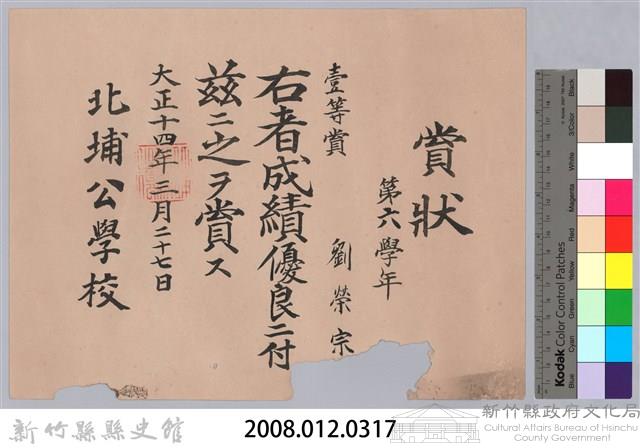 賞狀
第六學年
壹等賞 劉榮宗
右者成績優良ニ付
茲ニ之ヲ賞ス
大正十四年三月二十七日
北埔公學校
Kodak Color Control Patches
Blue
Cyan
Green
Yellow
Red
Magenta
White
3/Color
Black
新竹縣縣史館
2008.012.0317
新竹縣政府文化局
Cultural Affairs Bureau of Hsinchu
County Government